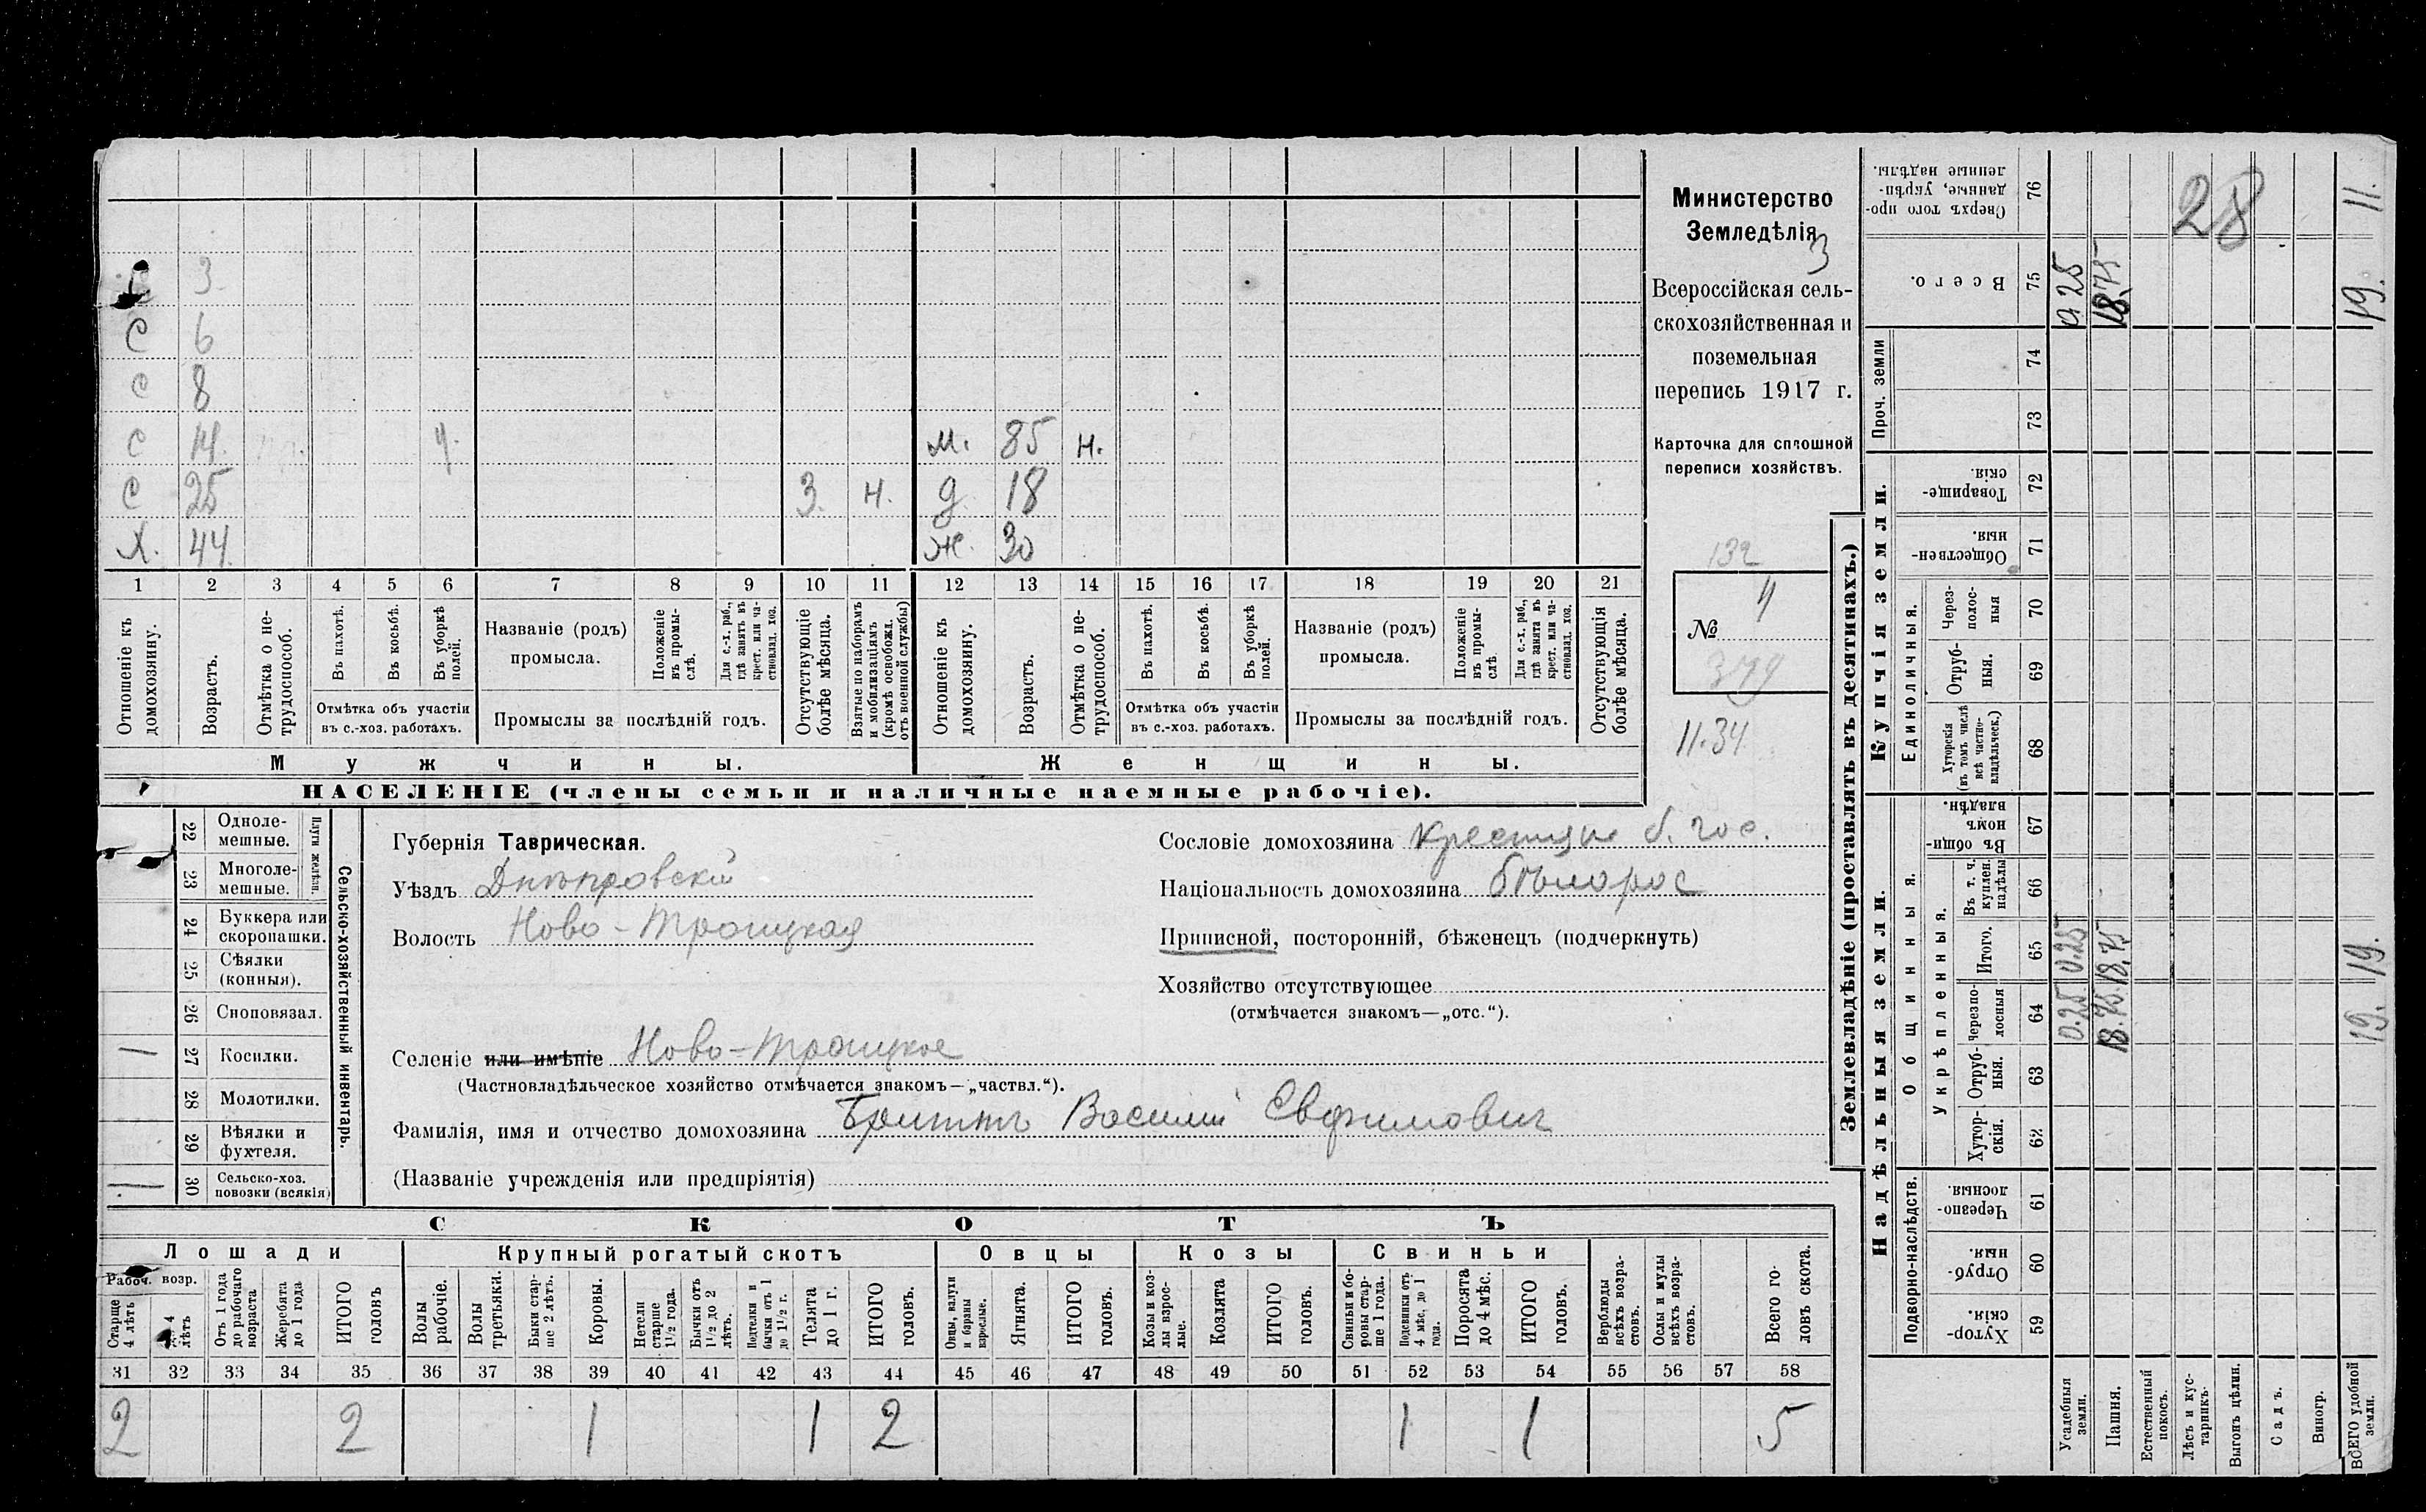 Министерство
Земледѣлія
3
Всероссійская сель-
скохозяйственная и
поземельная
перепись 1917 г.
Карточка для сплошной
переписи хозяйствъ.
132
№ 4
379
11.34
3
С 6
С 8
С 14. м. 85 н.
С 25 3. н. д. 18
Х. 44 ж. 30
1 2 3 4 5 6 7 8 9 10 11 12 13 14 15 16 17 18 19 20 21
Отношеніе къ домохозяину.
Возрастъ.
Отмѣтка о не-трудоспособ.
Въ пахотѣ.
Въ косьбѣ.
Въ уборкѣ полей.
Отмѣтка объ участіи въ с.-хоз. работахъ.
Названіе (родъ) промысла.
Положеніе въ промы-слѣ.
Для с.-х. раб., гдѣ занятъ въ крест. или ча-стновлад. хоз.
Промыслы за послѣдній годъ.
Отсутствующіе болѣе мѣсяца.
Взятые по наборамъ и мобилизаціямъ (кромѣ освобожд. отъ военной службы)
Отношеніе къ домохозяину.
Возрастъ.
Отмѣтка о не-трудоспособ.
Въ пахотѣ.
Въ косьбѣ.
Въ уборкѣ полей.
Отмѣтка объ участіи въ с.-хоз. работахъ.
Названіе (родъ) промысла.
Положеніе въ промы-слѣ.
Для с.-х. раб., гдѣ занята въ крест. или ча-стновлад. хоз.
Промыслы за послѣдній годъ.
Отсутствующія болѣе мѣсяца.
Мужчины.
Женщины.
НАСЕЛЕНІЕ (члены семьи и наличные наемные рабочіе).
Сельско-хозяйственный инвентарь.
Плуги желѣзн.
22 Одноле-мешные.
23 Многоле-мешные.
24 Буккера или скоропашки.
25 Сѣялки (конныя).
26 Сноповязал.
27 Косилки.
28 Молотилки.
29 Вѣялки и фухтеля.
30 Сельско-хоз. повозки (всякія)
Губернія Таврическая.
Уѣздъ Днѣпровскій
Волость Ново-Троицкая
Селеніе или имѣніе Ново-Троицкое
(Частновладѣльческое хозяйство отмѣчается знакомъ—„частвл.“).
Фамилія, имя и отчество домохозяина Василий Евфимович
(Названіе учрежденія или предпріятія)
Сословіе домохозяина б. гос.
Національность домохозяина бѣлорос
Приписной, посторонній, бѣженецъ (подчеркнуть)
Хозяйство отсутствующее
(отмѣчается знакомъ—„отс.“).
СКОТЪ
Лошади
Рабоч. возр.
Старше 4 лѣтъ
До 4 лѣтъ
Отъ 1 года до рабочаго возраста
Жеребята до 1 года
ИТОГО головъ
Крупный рогатый скотъ
Волы рабочіе.
Волы третьяки.
Быки стар-ше 2 лѣтъ.
Коровы.
Нетели старше 1½ года.
Бычки отъ 1½ до 2 лѣтъ.
Подтелки и бычки отъ 1 до 1½ г.
Телята до 1 г.
ИТОГО головъ.
Овцы
Овцы, валухи и бараны взрослые.
Ягнята.
ИТОГО головъ.
Козы
Козы и коз-лы взрос-лые.
Козлята
ИТОГО головъ.
Свиньи
Свиньи и бо-ровы стар-ше 1 года.
Подсвинки отъ 4 мѣс. до 1 года.
Поросята до 4 мѣс.
ИТОГО головъ.
Верблюды всѣхъ возра-стовъ.
Ослы и мулы всѣхъ возра-стовъ.
Всего го-ловъ скота.
31 32 33 34 35 36 37 38 39 40 41 42 43 44 45 46 47 48 49 50 51 52 53 54 55 56 57 58
2 2 1 1 2 1 1 5
Землевладѣніе (проставлять въ десятинахъ.)
Надѣльныя земли.
Подворно-наслѣдств.
Хутор-скія. 59
Отруб-ныя. 60
Черезпо-лосныя. 61
Общинныя.
Укрѣпленныя.
Хутор-скія. 62
Отруб-ныя. 63
Черезпо-лосныя 64
Итого. 65
Въ т. ч. куплен. надѣлы 66
Въ общи-номъ владѣн. 67
Купчія земли.
Единоличныя.
Хуторскія (въ томъ числѣ всѣ частно-владѣльческ.) 68
Отруб-ныя. 69
Через-полос-ныя 70
Обществен-ныя. 71
Товарище-скія. 72
Проч. земли
73
74
Всего. 75
Сверхъ того про-данные, укрѣп-ленные надѣлы. 76
Усадебныя земли. 0.25 0.25 0.25
Пашня. 18.75 18.75 18.75
Естественный покосъ.
Лѣсъ и кус-тарникъ.
Выгонъ цѣлин.
Садъ.
Виногр.
ВСЕГО удобной земли. 19. 19. 19. 11.
28